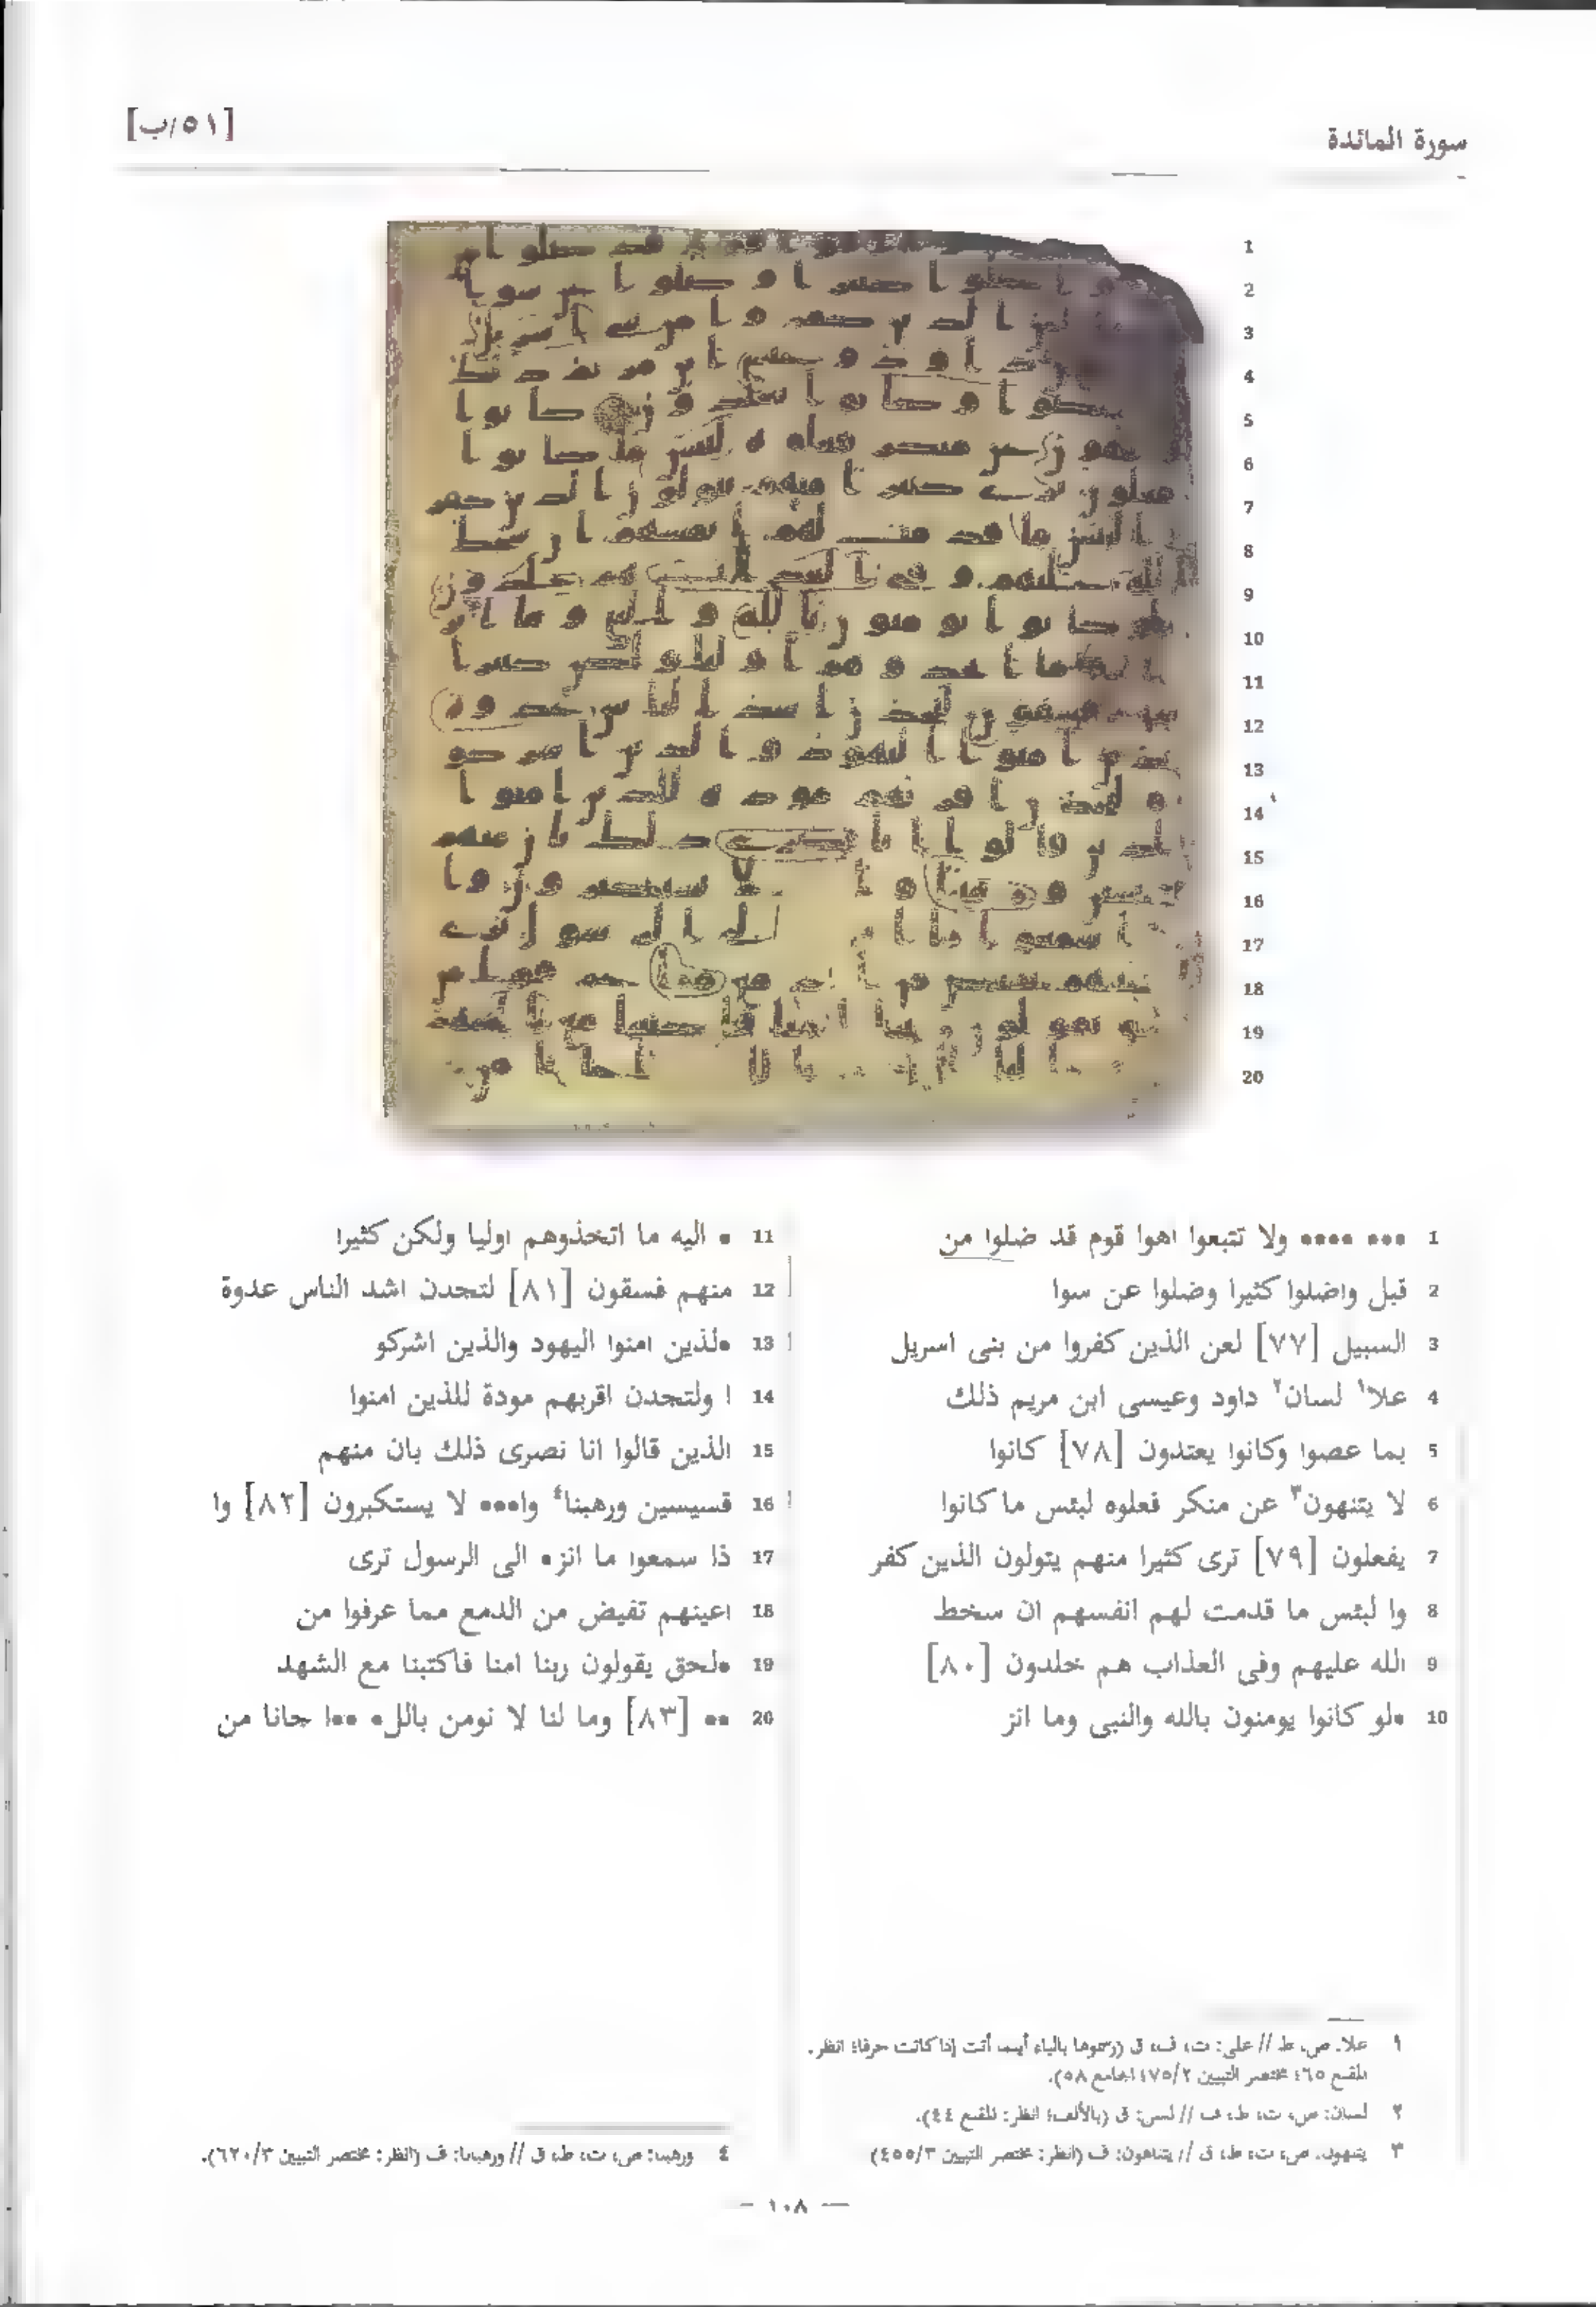 سورة المائدة
[٥١/ب]
1 ••• •••• ولا تتبعوا اهوا قوم قد ضلوا من
2 قبل واضلوا كثيرا وضلوا عن سوا
3 السبيل [٧٧] لعن الذين كفروا من بنى اسريل
4 علا١ لسان٢ داود وعيسى ابن مريم ذلك
5 بما عصوا وكانوا يعتدون [٧٨] كانوا
6 لا يتنهون٣ عن منكر فعلوه لبئس ما كانوا
7 يفعلون [٧٩] ترى كثيرا منهم يتولون الذين كفر
8 وا لبئس ما قدمت لهم انفسهم ان سخط
9 الله عليهم وفى العذاب هم خلدون [٨٠]
10 •لو كانوا يومنون بالله والنبى وما انز
11 • اليه ما اتخذوهم اوليا ولكن كثيرا
12 منهم فسقون [٨١] لتجدن اشد الناس عدوة
13 •لذين امنوا اليهود والذين اشركو
14 ا ولتجدن اقربهم مودة للذين امنوا
15 الذين قالوا انا نصرى ذلك بان منهم
16 قسيسين ورهبنا٤ وا••• لا يستكبرون [٨٢] وا
17 ذا سمعوا ما انز• الى الرسول ترى
18 اعينهم تفيض من الدمع مما عرفوا من
19 •لحق يقولون ربنا امنا فاكتبنا مع الشهد
20 •• [٨٣] وما لنا لا نومن بالل• ••ا جانا من
١ علا: ص، ط // على: ت، ف، ق (رسموها بالياء أينما أتت إذا كانت حرفا؛ انظر:
المقنع ٦٥؛ مختصر التبيين ٧٥/٢؛ الجامع ٥٨).
٢ لسان: ص، ت، ط، ف // لسن: ق (بالألف؛ انظر: المقنع ٤٤).
٣ يتنهون: ص، ت، ط، ق // يتناهون: ف (انظر: مختصر التبيين ٤٥٥/٣)
٤ ورهبنا: ص، ت، ط، ق // ورهبانا: ف (انظر: مختصر التبيين ٦٢٠/٣).
— ١٠٨ —